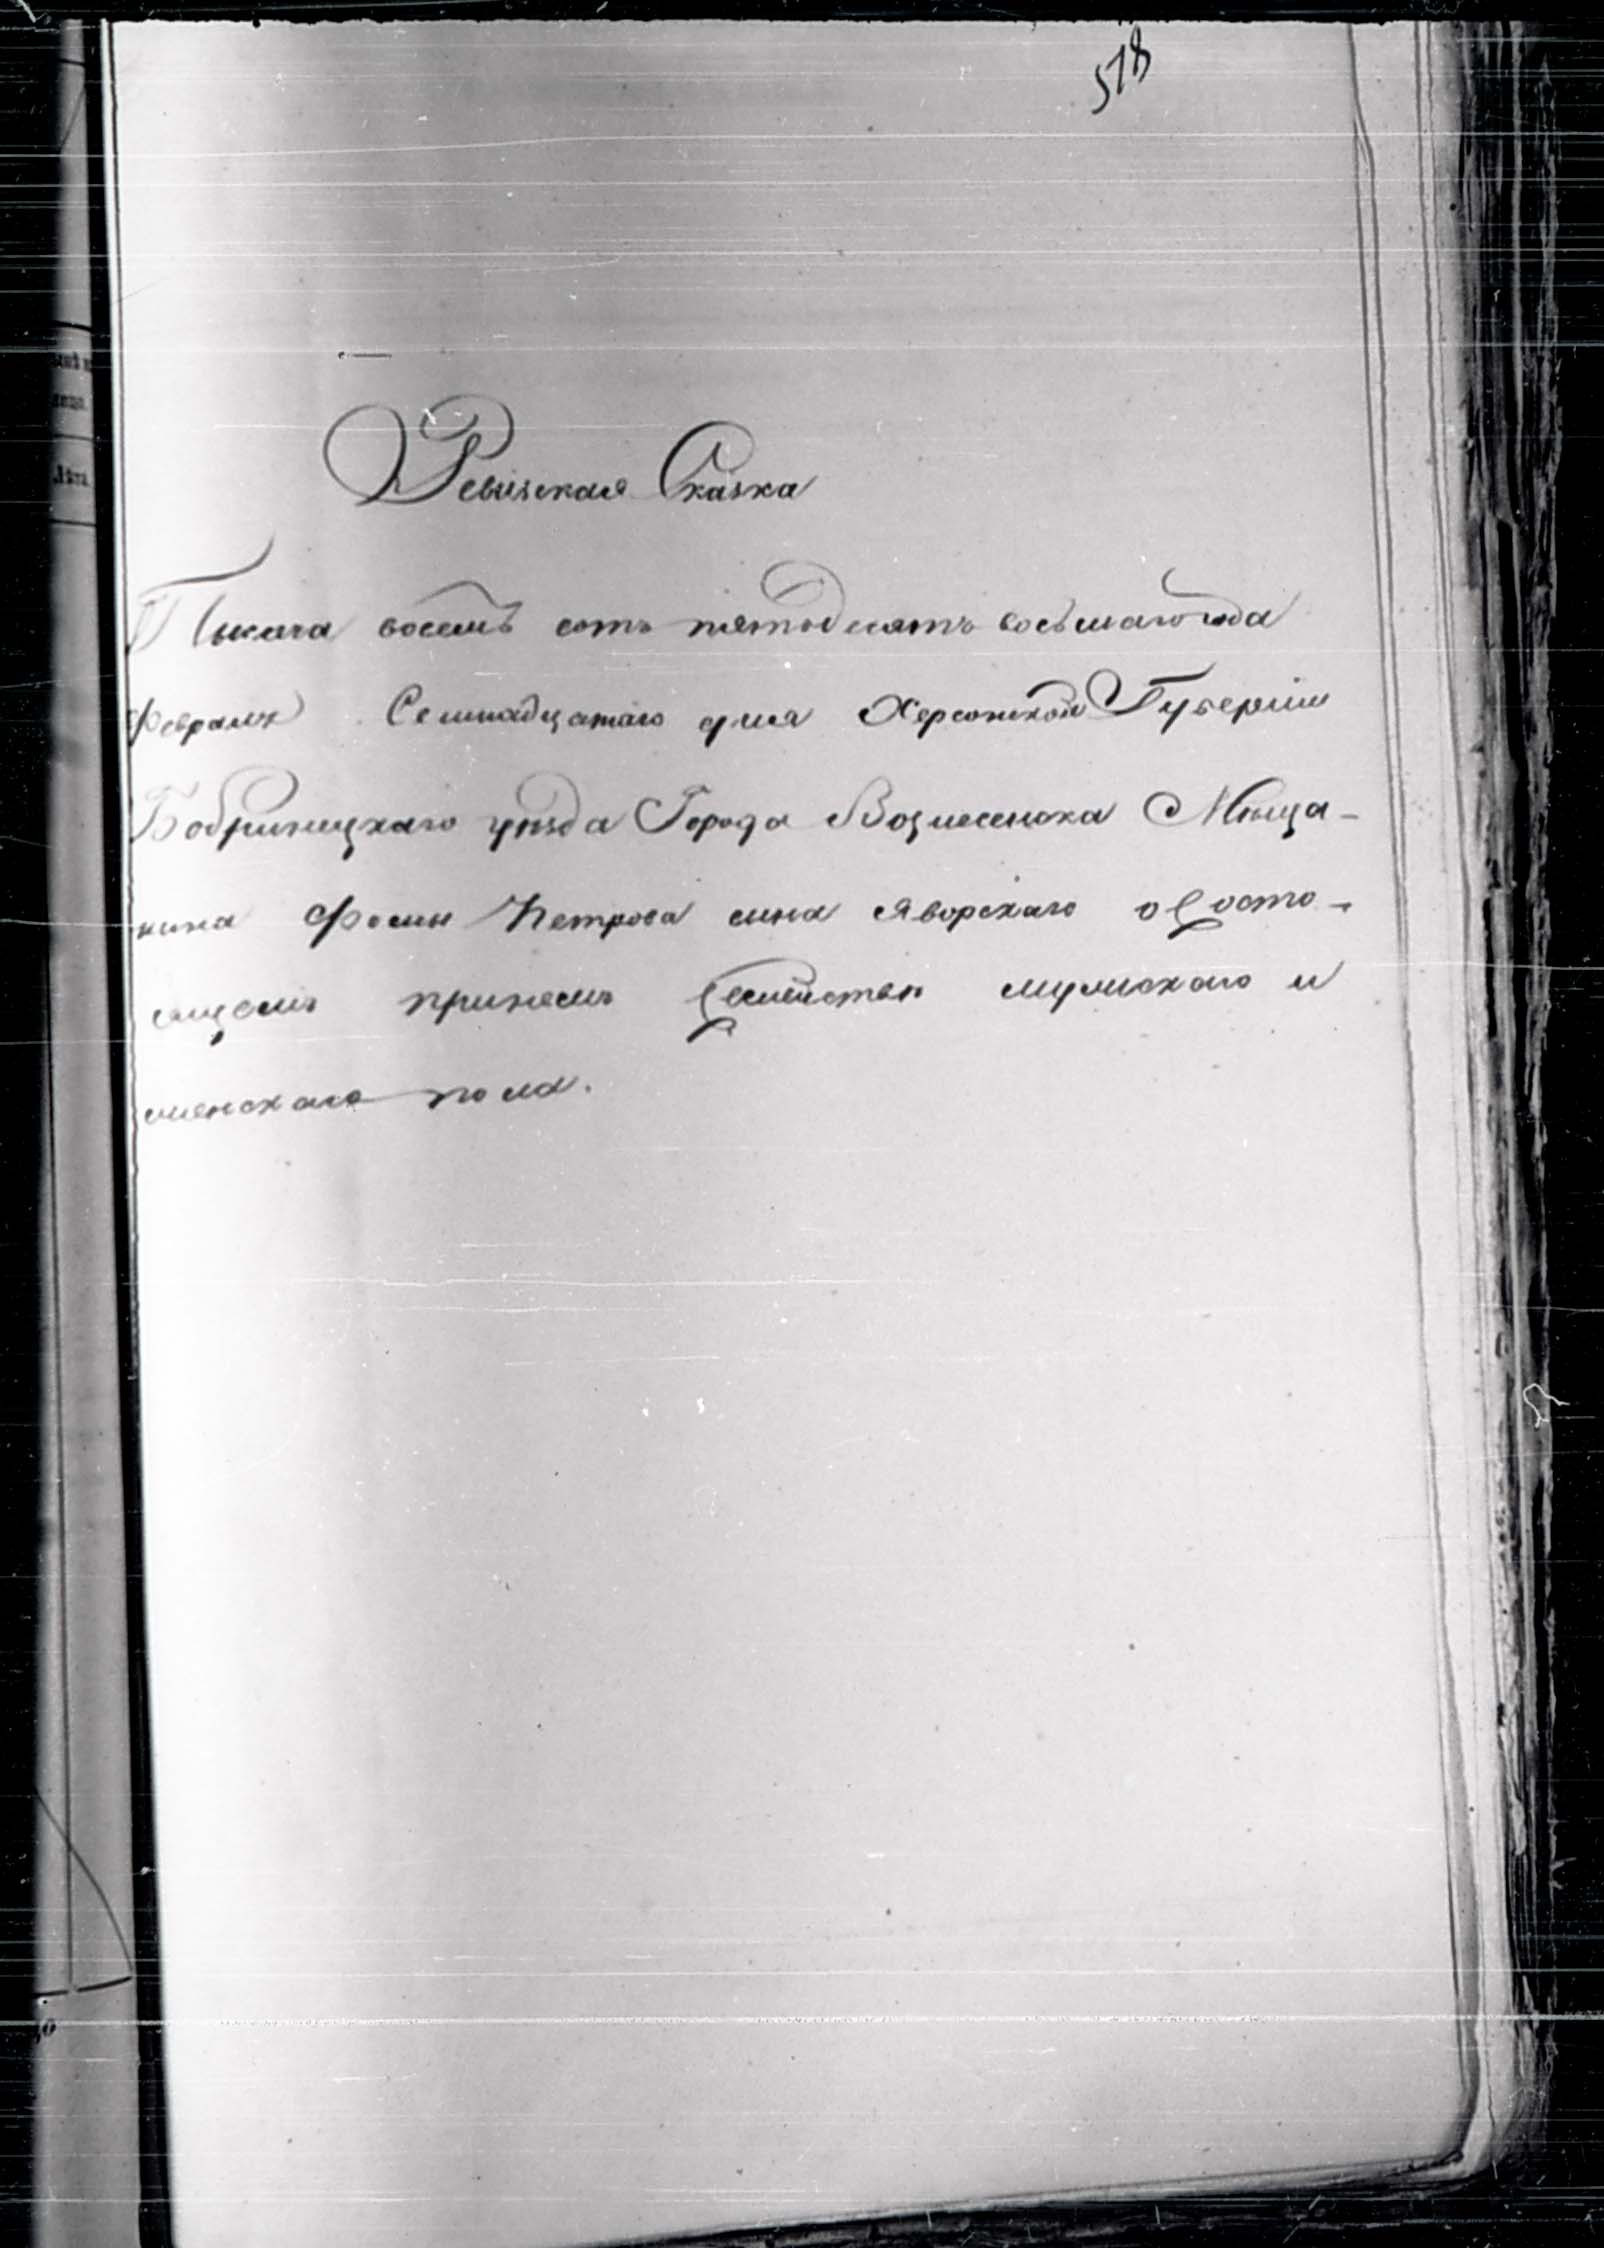 578
Ревизская Сказка
Тысяча восемь сотъ пятьдесятъ восьмаго года
Февраля Семнадцатаго дня Херсонской Губерніи
Бобринецкаго уѣзда Города Вознесенска Мѣща-
нина Фомы Петрова сына Яворскаго о состо-
ящемъ принемъ Семействѣ мужскаго и
женскаго пола.
Лѣта.